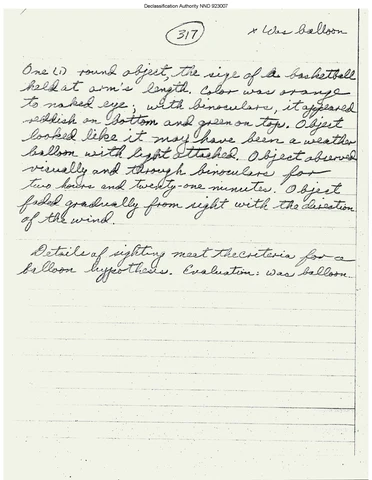 Declassification Authority NND 923007
317
x Was balloon
One (1) round object, the size of a basketball
held at arm's length. Color was orange
to naked eye; with binoculars, it appeared
reddish on bottom and green on top. Object
looked like it may have been a weather
balloon with light attached. Object observed
visually and through binoculars for
two hours and twenty-one minutes. Object
faded gradually from sight with the direction
of the wind.
Details of sighting meet the criteria for a
balloon hypothesis. Evaluation: was balloon.